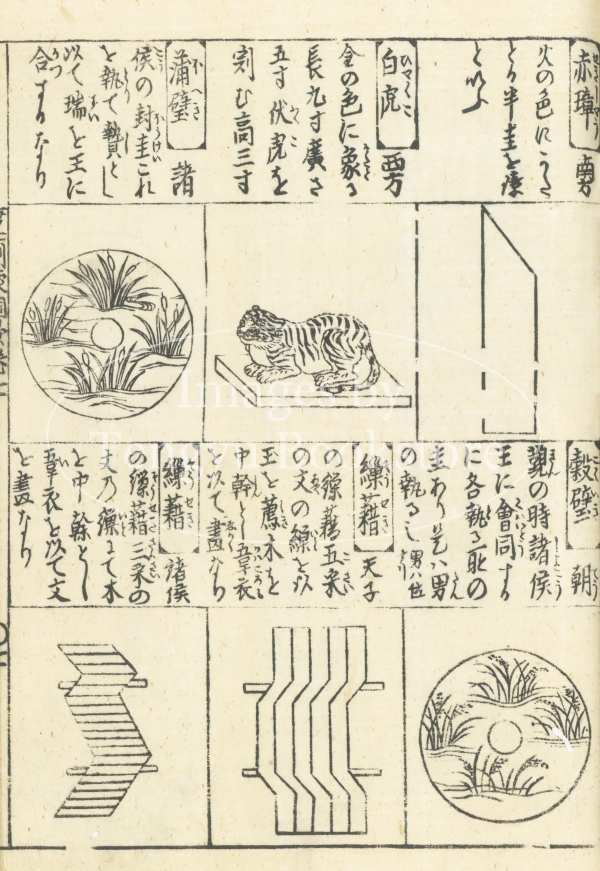 赤璋 南方
火の色にかたど
とる半圭を璋
といふ
白虎 西方
金の色に象る
長九寸廣さ
五寸伏虎を
刻む高三寸
蒲璧 諸
侯の封圭これ
を執て贄とし
以て瑞を王に
合するなり
穀璧 朝
覲の時諸侯
王に會同する
に各執る所の
圭あり是ハ男
の執るし 男ハ位
繅藉 天子
の繅藉五采
の文の繰を以
玉を薦木を
中幹とし韋衣
を以て畫なり
繅藉 諸侯
の繅藉三采の
丈乃繅にて木
を中幹とし
韋衣を以て文
を畫なり
Images by
Tongyu Bookstore